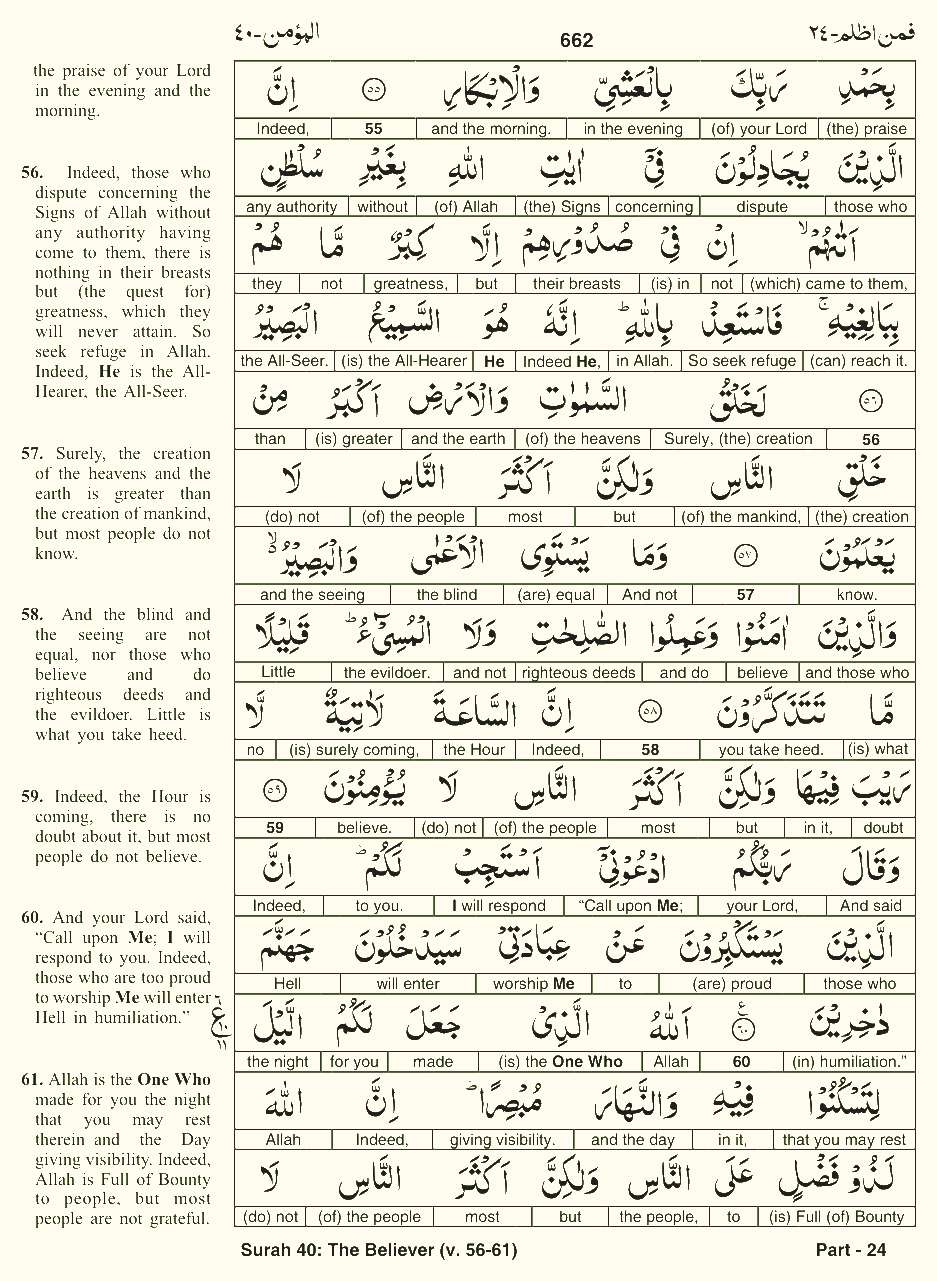 المؤمن-٤٠
662
فمن اظلم-٢٤
the praise of your Lord
in the evening and the
morning.
56. Indeed, those who
dispute concerning the
Signs of Allah without
any authority having
come to them, there is
nothing in their breasts
but (the quest for)
greatness, which they
will never attain. So
seek refuge in Allah.
Indeed, He is the All-
Hearer, the All-Seer.
57. Surely, the creation
of the heavens and the
earth is greater than
the creation of mankind,
but most people do not
know.
58. And the blind and
the seeing are not
equal, nor those who
believe and do
righteous deeds and
the evildoer. Little is
what you take heed.
59. Indeed, the Hour is
coming, there is no
doubt about it, but most
people do not believe.
60. And your Lord said,
“Call upon Me; I will
respond to you. Indeed,
those who are too proud
to worship Me will enter
Hell in humiliation.”
61. Allah is the One Who
made for you the night
that you may rest
therein and the Day
giving visibility. Indeed,
Allah is Full of Bounty
to people, but most
people are not grateful.
بِحَمْدِ رَبِّكَ بِالْعَشِيِّ وَالْاِبْكَارِ ۝٥٥ اِنَّ
Indeed, 55 and the morning. in the evening (of) your Lord (the) praise
الَّذِيْنَ يُجَادِلُوْنَ فِيْٓ اٰيٰتِ اللّٰهِ بِغَيْرِ سُلْطٰنٍ
any authority without (of) Allah (the) Signs concerning dispute those who
اَتٰىهُمْ ۙ اِنْ فِيْ صُدُوْرِهِمْ اِلَّا كِبْرٌ مَّا هُمْ
they not greatness, but their breasts (is) in not (which) came to them,
بِبَالِغِيْهِ ۚ فَاسْتَعِذْ بِاللّٰهِ ؕ اِنَّهٗ هُوَ السَّمِيْعُ الْبَصِيْرُ
the All-Seer. (is) the All-Hearer He Indeed He, in Allah. So seek refuge (can) reach it.
۝٥٦ لَخَلْقُ السَّمٰوٰتِ وَالْاَرْضِ اَكْبَرُ مِنْ
than (is) greater and the earth (of) the heavens Surely, (the) creation 56
خَلْقِ النَّاسِ وَلٰكِنَّ اَكْثَرَ النَّاسِ لَا
(do) not (of) the people most but (of) the mankind, (the) creation
يَعْلَمُوْنَ ۝٥٧ وَمَا يَسْتَوِى الْاَعْمٰى وَالْبَصِيْرُ ۙ
and the seeing the blind (are) equal And not 57 know.
وَالَّذِيْنَ اٰمَنُوْا وَعَمِلُوا الصّٰلِحٰتِ وَلَا الْمُسِيْٓءُ ؕ قَلِيْلًا
Little the evildoer. and not righteous deeds and do believe and those who
مَّا تَتَذَكَّرُوْنَ ۝٥٨ اِنَّ السَّاعَةَ لَاٰتِيَةٌ لَّا
no (is) surely coming, the Hour Indeed, 58 you take heed. (is) what
رَيْبَ فِيْهَا وَلٰكِنَّ اَكْثَرَ النَّاسِ لَا يُؤْمِنُوْنَ ۝٥٩
59 believe. (do) not (of) the people most but in it, doubt
وَقَالَ رَبُّكُمُ ادْعُوْنِيْٓ اَسْتَجِبْ لَكُمْ ؕ اِنَّ
Indeed, to you. I will respond “Call upon Me; your Lord, And said
الَّذِيْنَ يَسْتَكْبِرُوْنَ عَنْ عِبَادَتِيْ سَيَدْخُلُوْنَ جَهَنَّمَ
Hell will enter worship Me to (are) proud those who
دٰخِرِيْنَ ۝٦٠ اَللّٰهُ الَّذِيْ جَعَلَ لَكُمُ الَّيْلَ
the night for you made (is) the One Who Allah 60 (in) humiliation.”
لِتَسْكُنُوْا فِيْهِ وَالنَّهَارَ مُبْصِرًا ؕ اِنَّ اللّٰهَ
Allah Indeed, giving visibility. and the day in it, that you may rest
لَذُوْ فَضْلٍ عَلَى النَّاسِ وَلٰكِنَّ اَكْثَرَ النَّاسِ لَا
(do) not (of) the people most but the people, to (is) Full (of) Bounty
Surah 40: The Believer (v. 56-61)
Part - 24